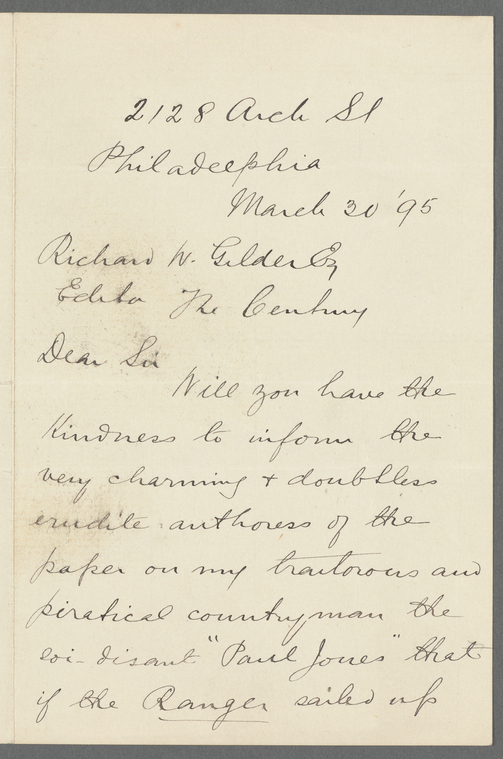 2128 Arch St
Philadelphia
March 30 '95
Richard W. Gilder Esq
Editor The Century
Dear Sir
Will you have the
kindness to inform the
very charming + doubtless
erudite authoress of the
paper on my traitorous and
piratical countryman the
soi-disant "Paul Jones" that
if the Ranger sailed up